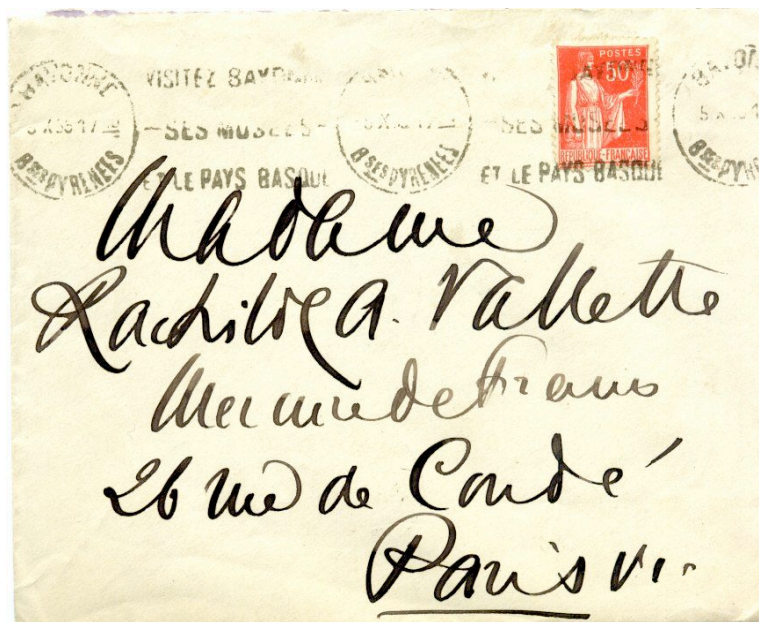 BAYONNE
5 X 35 17
Bses PYRENEES
VISITEZ BAYONNE
-SES MUSEES-
ET LE PAYS BASQUE
Bses PYRENEES
BAYONNE
-SES MUSEES
ET LE PAYS BASQUE
POSTES
50c
REPUBLIQUE-FRANÇAISE
BAYON
Bses PYRE
Madame
Rachilde A. Vallette
Mercure de France
26 rue de Condé
Paris VI.